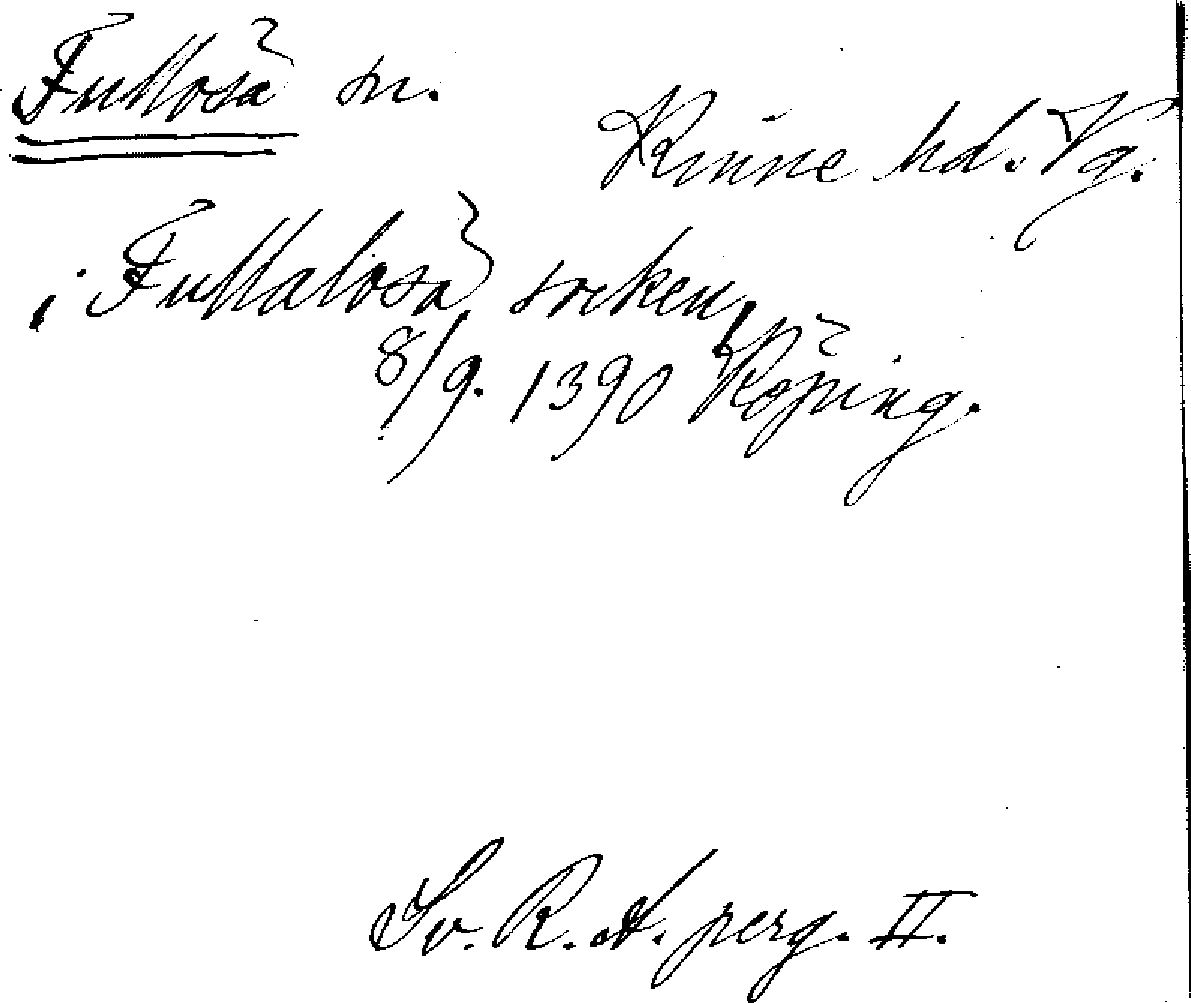 Fullösa sn.
Kinne hd. Vg.
i Fullalösa socken,
8/9. 1390 Köping.
Sv. R. A. perg. II.